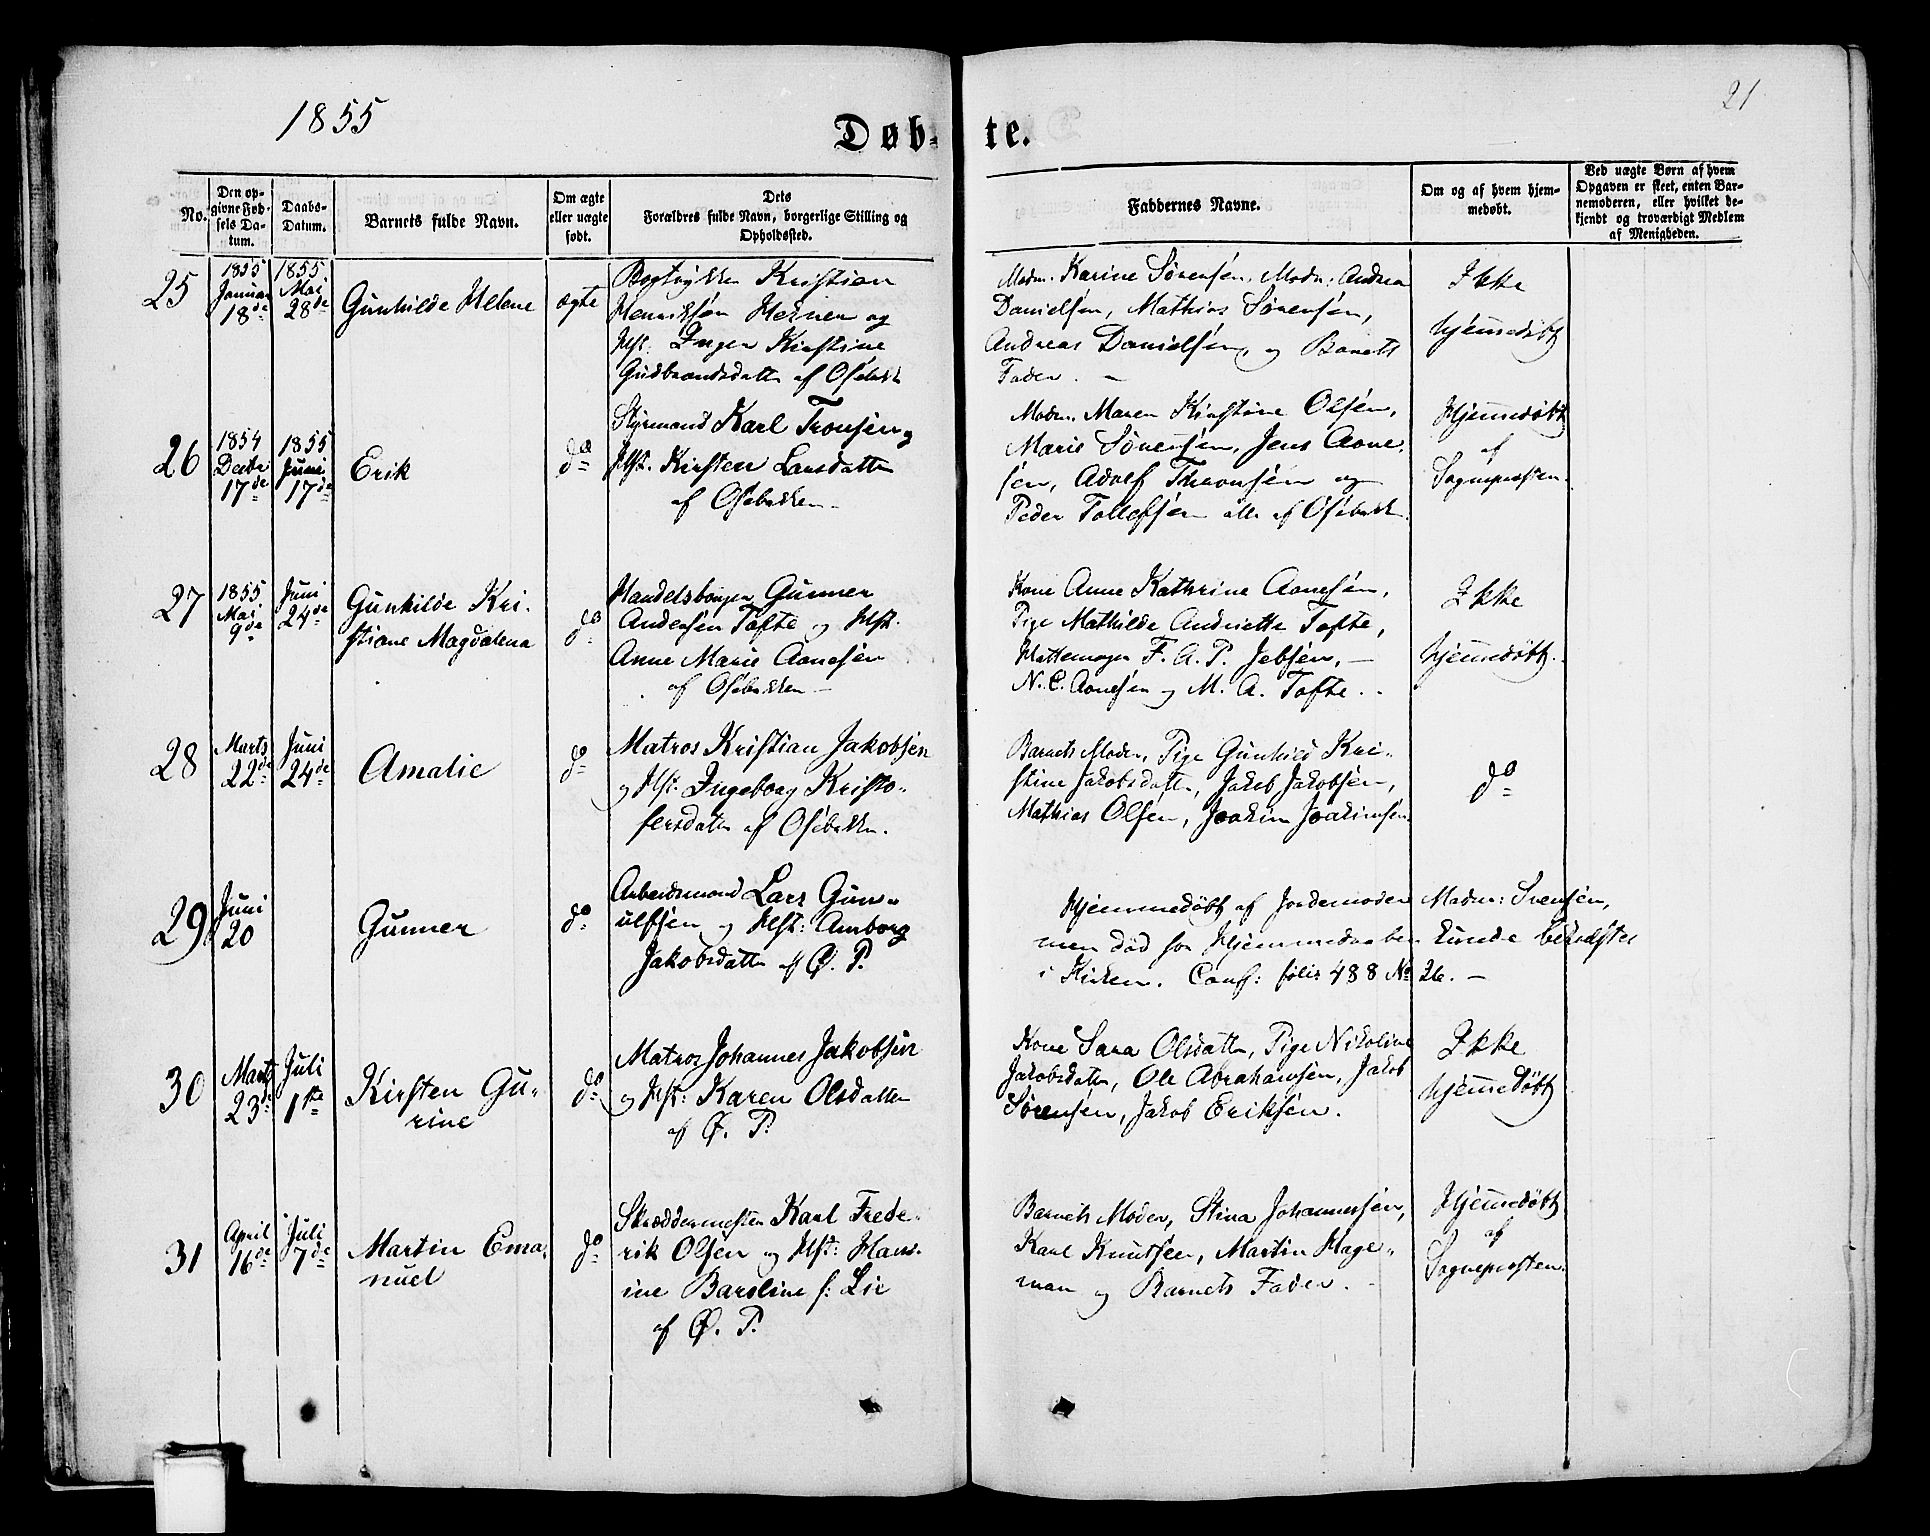 1855
21
Døb-
te.
No.
Den op-
givne Fød-
sels Da-
tum.
Daabs-
Datum.
Barnets fulde Navn.
Om ægte
eller uægte
født.
Dets
Forældres fulde Navn, borgerlige Stilling og
Opholdssted.
Faddernes Navne.
Om og af hvem hjem-
medøbt.
Ved uægte Børn af hvem
Opgaven er skeet, enten Bar-
nemoderen, eller hvilket be-
kjendt og troværdigt Medlem
af Menigheden.
25
1855
Januar
18de
1855
Mai
28de
Gunhilde Helene
ægte
Bogtrykker Kristian
Henriksøn Herner og
Hst. Inger Kirstine
Gudbrandsdatter af Osebakk
Madm. Karine Sørensen, Madm. Andrea
Danielsen, Mathias Sørensen,
Andreas Danielsen, og Barnets
Fader. –
Ikke
hjemmedøbt
26
1854
Decbr
17de
1855
Juni
17de
Erik
do
Styrmand Karl Tronsen og
Hst. Kirsten Larsdatter
af Osebakken
Madm. Maren Kirstine Olsen,
Marie Sørensen, Jens Aane-
sen, Adolf Thronsen og
Peder Tollefsen alle af Osebakk.
Hjemmedøbt
af
Sognepresten.
27
1855
Mai
9de
Juni
24de
Gunhilde Kri-
stiane Magdalena
do
Handelsborger Gunner
Andersen Tofte og Hst.
Anne Marie Aanesen
af Osebakken –
Kone Anne Kathrine Aanesen,
Pige Mathilde Andriette Tofte,
Hattemager F. A. P. Jebsen, –
N. C. Aanesen og M. A. Tofte. –
Ikke
hjemmedøbt.
28
Marts
22de
Juni
24de
Amalie
do
Matros Kristian Jakobsen
og Hst. Ingeborg Kristo-
fersdatter af Osebakken.
Barnets Moder, Pige Gunhild Kri-
stine Jakobsdatter, Jakob Jakobsen,
Mathias Olsen, Joakim Joakimsen
do
29
Juni
20
Gunner
do
Arbeidsmand Lars Gun-
ulfsen og Hst: Amborg
Jakobsdatter af Ø. P.
Hjemmedøbt af Jordemoder Madm: Svensen,
men død før Hjemmedaaben kunde bekræftes
i Kirken. Conf: folio 488 No 26. –
30
Marts
23de
Juli
1ste
Kirsten Gu-
rine
do
Matros Johannes Jakobsen
og Hst: Karen Olsdatter
af Ø. P.
Kone Sara Olsdatter, Pige Nikoline
Jakobsdatter, Ole Abrahamsen, Jakob
Sørensen, Jakob Eriksen.
Ikke
hjemmedøbt
31
April
16de
Juli
7de
Martin Ema-
nuel
do
Skræddermester Karl Frede-
rik Olsen og Hst: Han-
ine Baroline f: Lie
af Ø. P.
Barnets Moder, Stina Johannessen,
Karl Knutsen, Martin Hage-
man og Barnets Fader. –
Hjemmedøbt
af
Sognepresten.